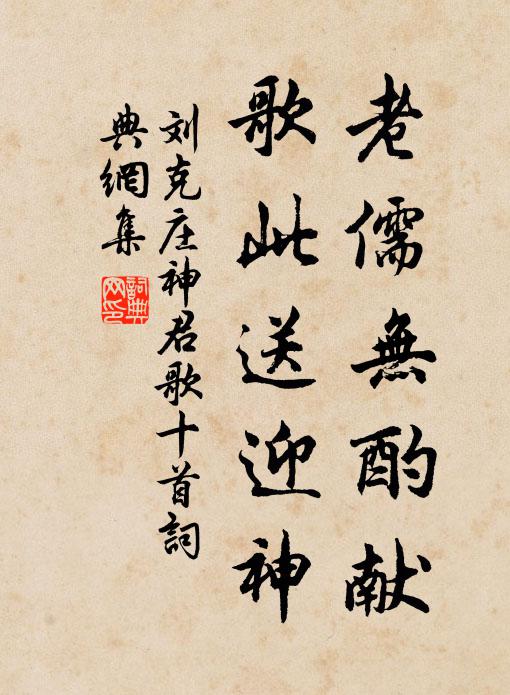 老儒無酌献
歌此送迎神
刘克庄神君歌十首詞
典網集
詞典網印